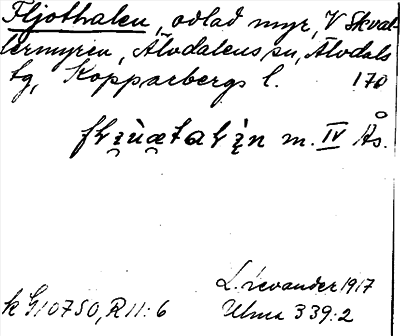 Fljothalen, odlad myr, V Skvat-
lermyren, Älvdalens sn, Älvdals
tg, Kopparbergs l. 170
m. IV Ås.
L. Levander 1917
k G10750, R11:6 Ulma 339:2